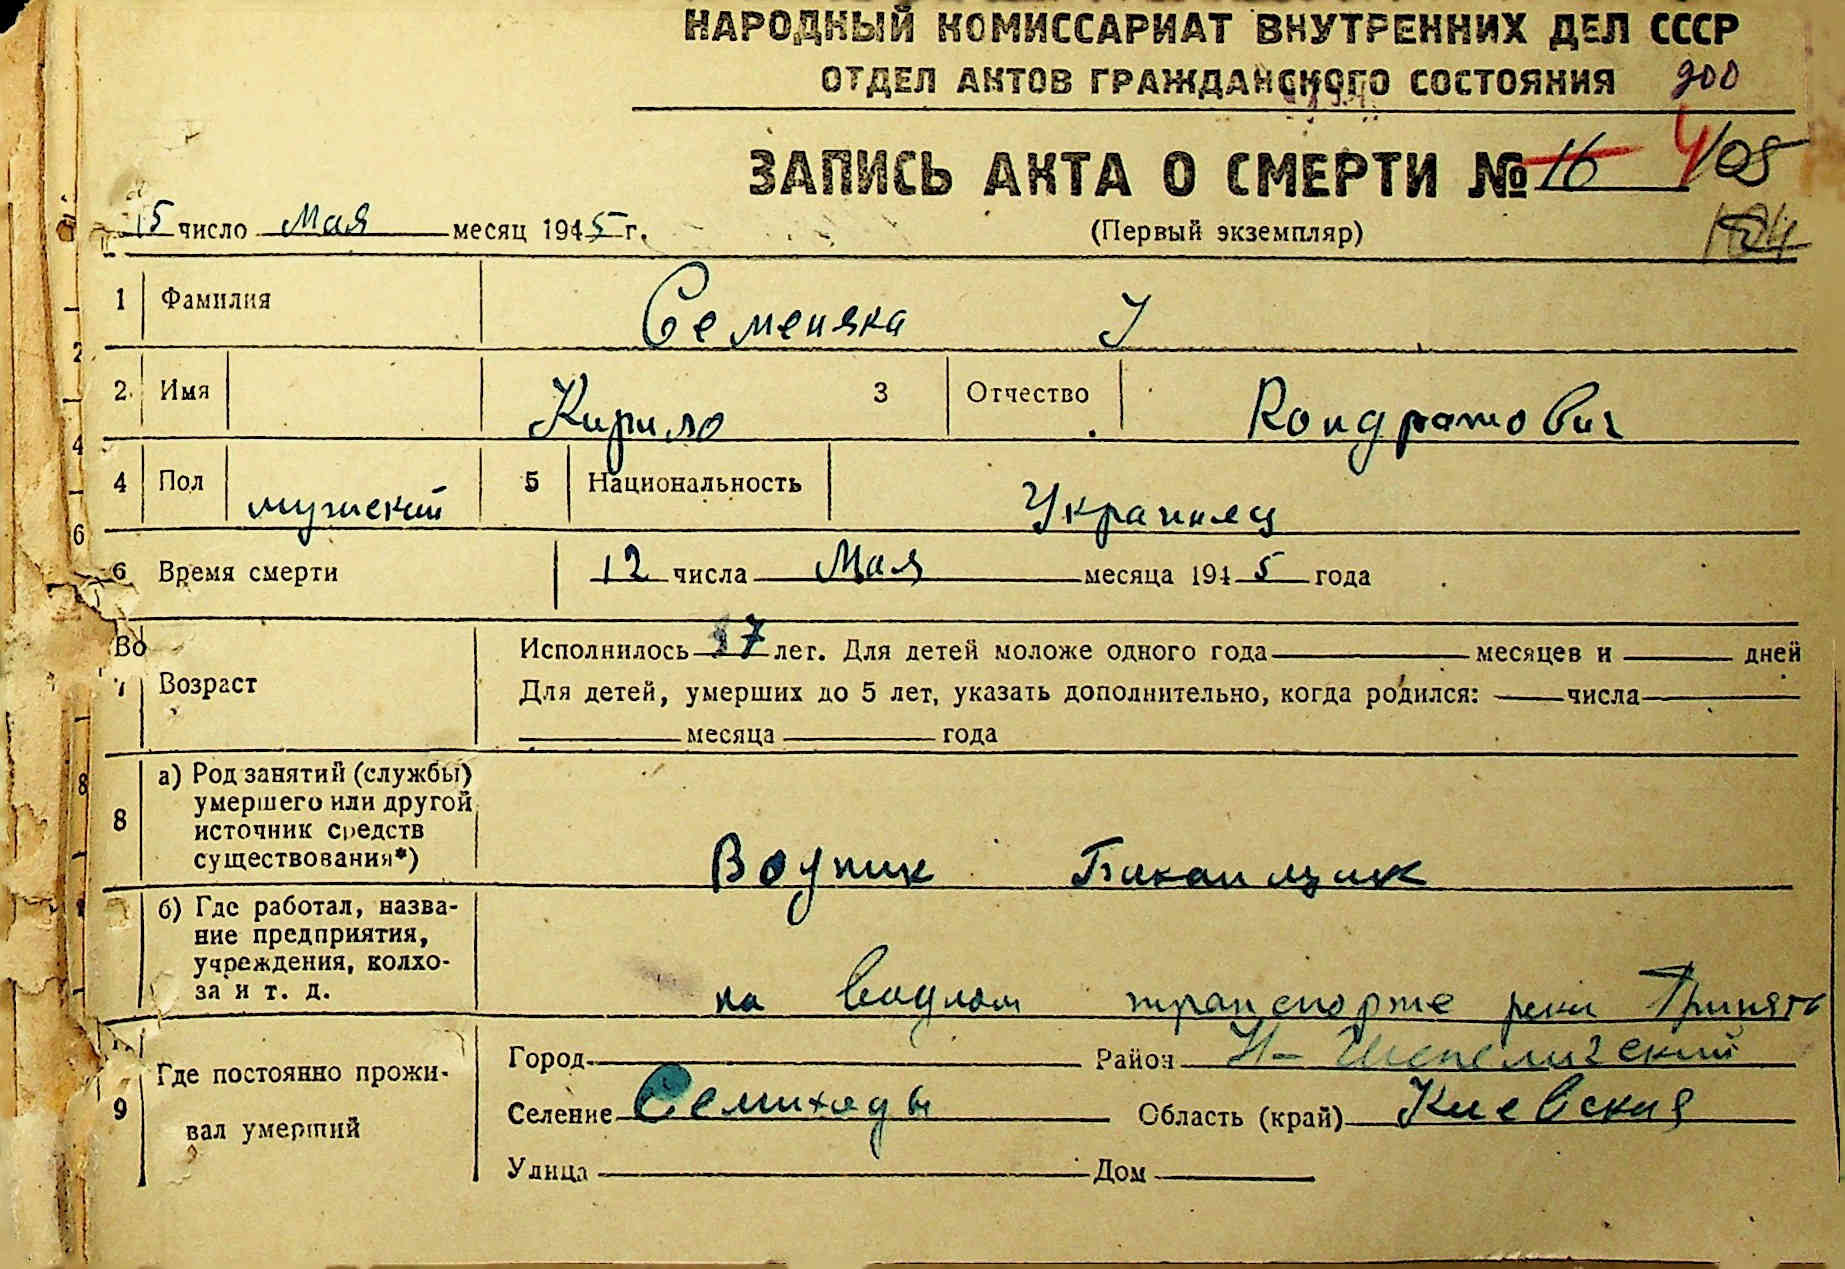 НАРОДНЫЙ КОМИССАРИАТ ВНУТРЕННИХ ДЕЛ СССР
ОТДЕЛ АКТОВ ГРАЖДАНСКОГО СОСТОЯНИЯ 200
ЗАПИСЬ АКТА О СМЕРТИ № 16 4/05
15 число Мая месяц 1945 г. (Первый экземпляр)
1 ФамилияРеменяка У
2 Имя Кирило 3 Отчество Кондратович
4 Пол мужский 5 Национальность Украинец
6 Время смерти 12 числа Мая месяца 1945 года
Исполнилось 37 лет. Для детей моложе одного года месяцев и дней
7 Возраст
Для детей, умерших до 5 лет, указать дополнительно, когда родился: числа
месяца года
8 а) Род занятий (службы)
умершего или другой
источник средств
существования*)
Водник Баканщик
б) Где работал, назва-
ние предприятия,
учреждения, колхо-
за и т. д.
на водном транспорте реки Припять
Город Район Н-Шепелическый
9 Где постоянно прожи-
вал умерший
Селение Семиходы Область (край) Киевския
Улица Дом